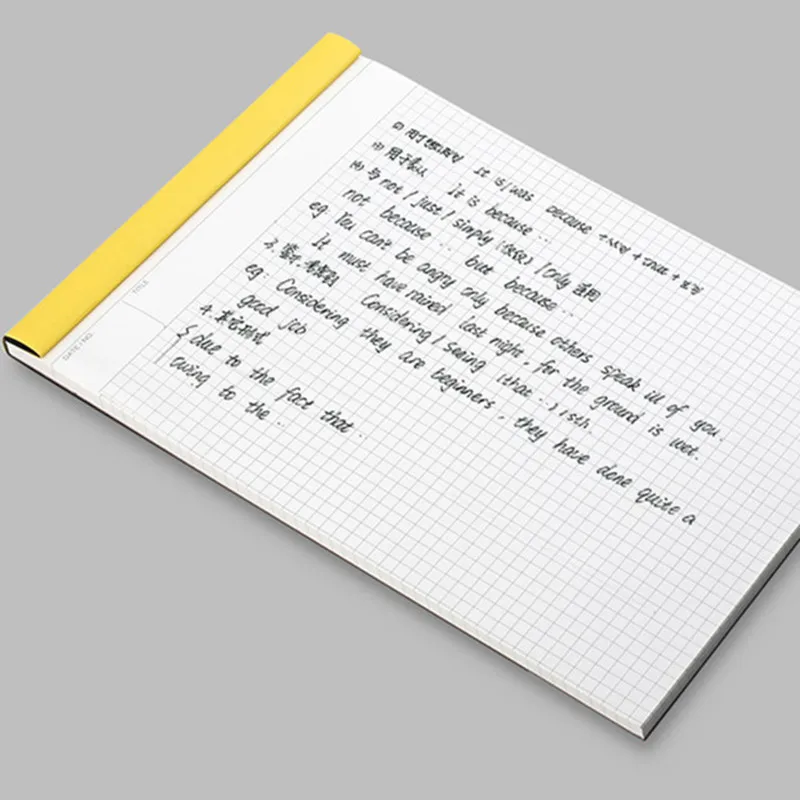 用于强调句 It is / was because +从句 +that +主句
用于表从 It is because ..
与 not / just / simply / only 连用
not because .. but because ..
eg. You can't be angry only because others speak ill of you.
It must have rained last night, for the ground is wet.
2. Considering / Seeing (that ...) / sth.
eg: Considering they are beginners, they have done quite a
good job
4. 其它形式
due to the fact that ..
owing to the ..
TITLE
DATE / NO.